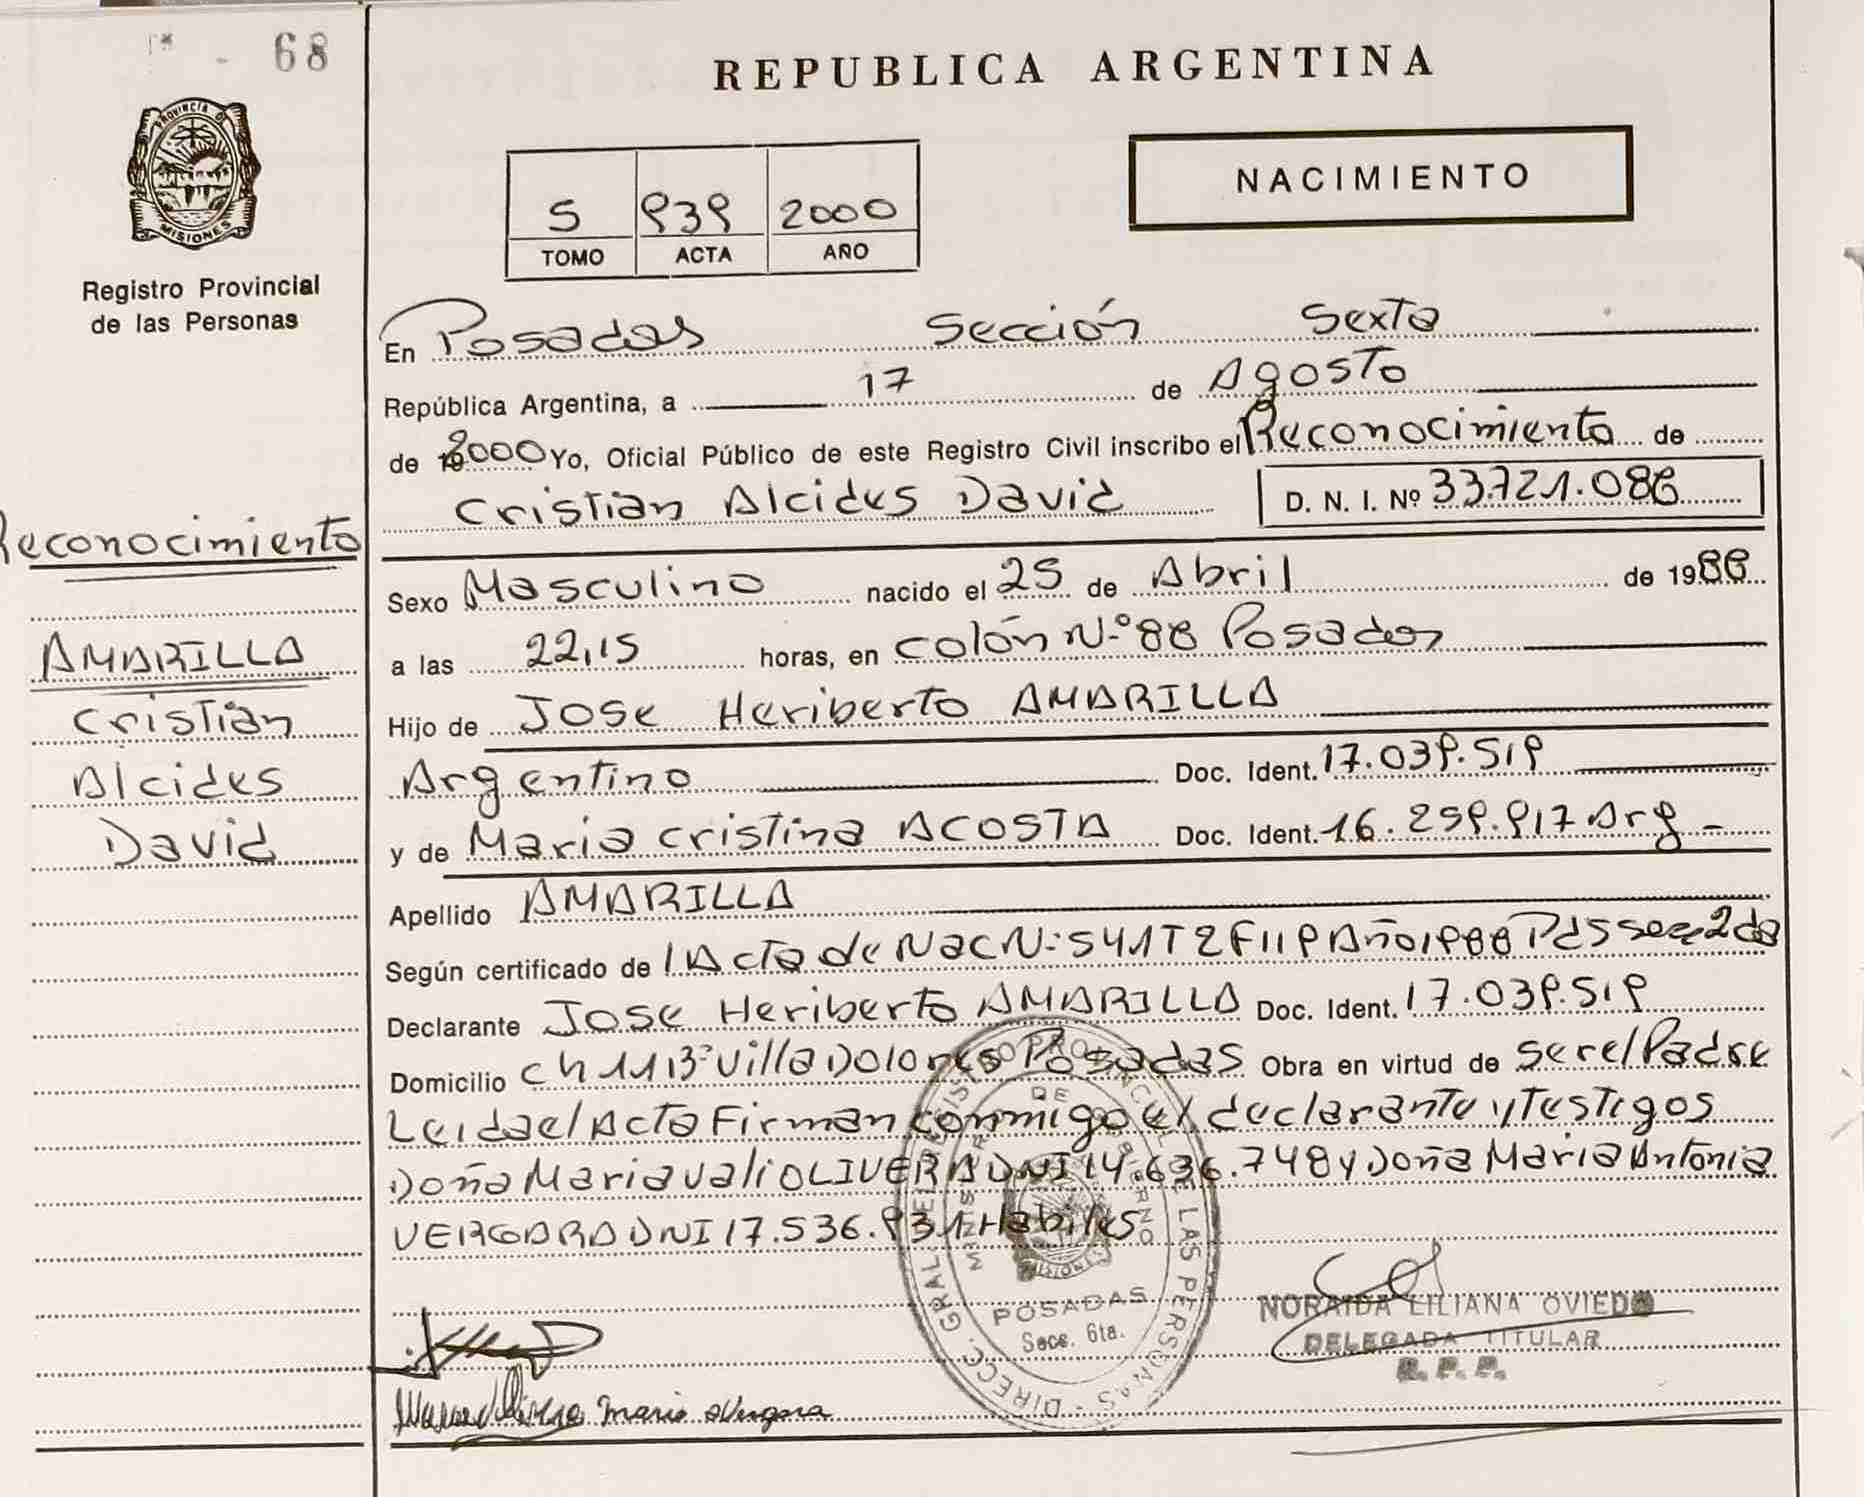 68
REPUBLICA ARGENTINA
PROVINCIA DE
MISIONES
Registro Provincial
de las Personas
5 939 2000
TOMO ACTA AÑO
NACIMIENTO
En Posadas Sección Sexta
República Argentina, a 17 de Agosto
de 2000 Yo, Oficial Público de este Registro Civil inscribo el Reconocimiento de
Cristian Alcides David D. N. I. Nº 33.721.088
Reconocimiento
AMARILLA
Cristian
Alcides
David
Sexo Masculino nacido el 25 de Abril de 1988
a las 22,15 horas, en Colón N.º 88 Posadas
Hijo de Jose Heriberto AMARILLA
Argentino Doc. Ident. 17.039.519
y de Maria Cristina ACOSTA Doc. Ident. 16.259.917 Arg -
Apellido AMARILLA
Según certificado de Acta de Nac N: 541 T 2 F 119 Año 1988 Pdas Secc 2da
Declarante Jose Heriberto AMARILLA Doc. Ident. 17.039.519
Domicilio Ch 113 Villa Dolores Posadas Obra en virtud de ser el Padre
Leida el Acta Firman conmigo el declarante y Testigos
Doña Maria OLIVERA DNI 14.636.748 y Doña Maria Antonia
VERGARA DNI 17.536.931 Habiles
DIRECC. GRAL. DEL REGISTRO PROVINCIAL DE LAS PERSONAS
MINISTERIO DE GOBIERNO
MISIONES
POSADAS
Secc. 6ta.
NORAIDA LILIANA OVIEDO
DELEGADA TITULAR
R. P. P.
Maria A Vergara